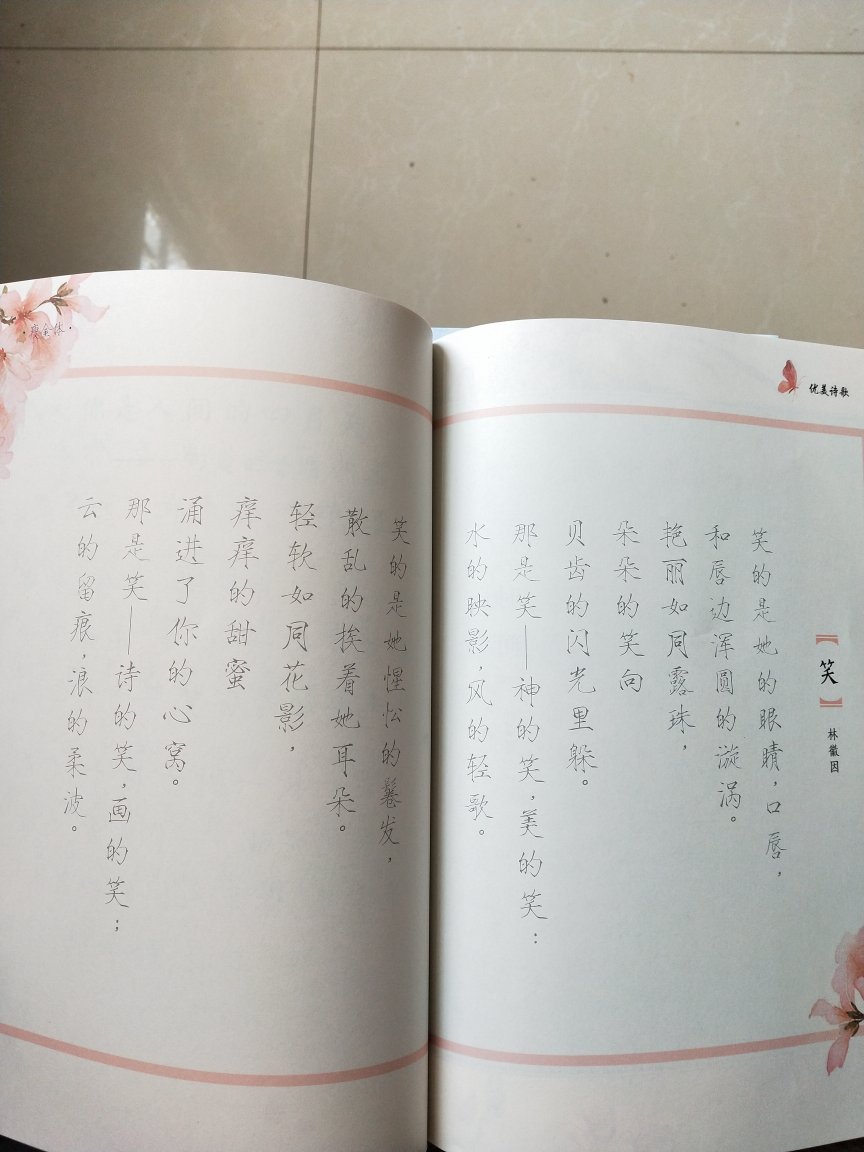 优美诗歌
【笑】
林徽因
笑的是她的眼睛，口唇，
和唇边浑圆的漩涡。
艳丽如同露珠，
朵朵的笑向
贝齿的闪光里躲。
那是笑——神的笑，美的笑：
水的映影，风的轻歌。
笑的是她惺忪的鬈发，
散乱的挨着她耳朵。
轻软如同花影，
痒痒的甜蜜
涌进了你的心窝。
那是笑——诗的笑，画的笑；
云的留痕，浪的柔波。